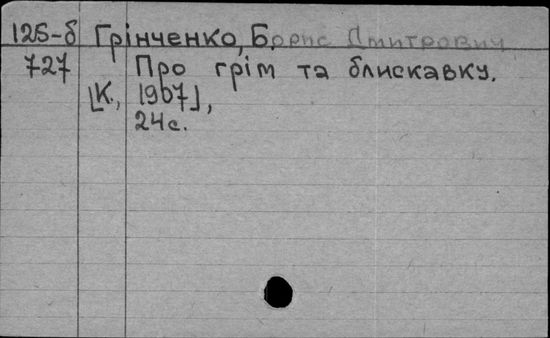 125-б Грінченко, Б. Борис Дмитрович
727 Про грім та блискавку.
[К., 1907],
24 с.